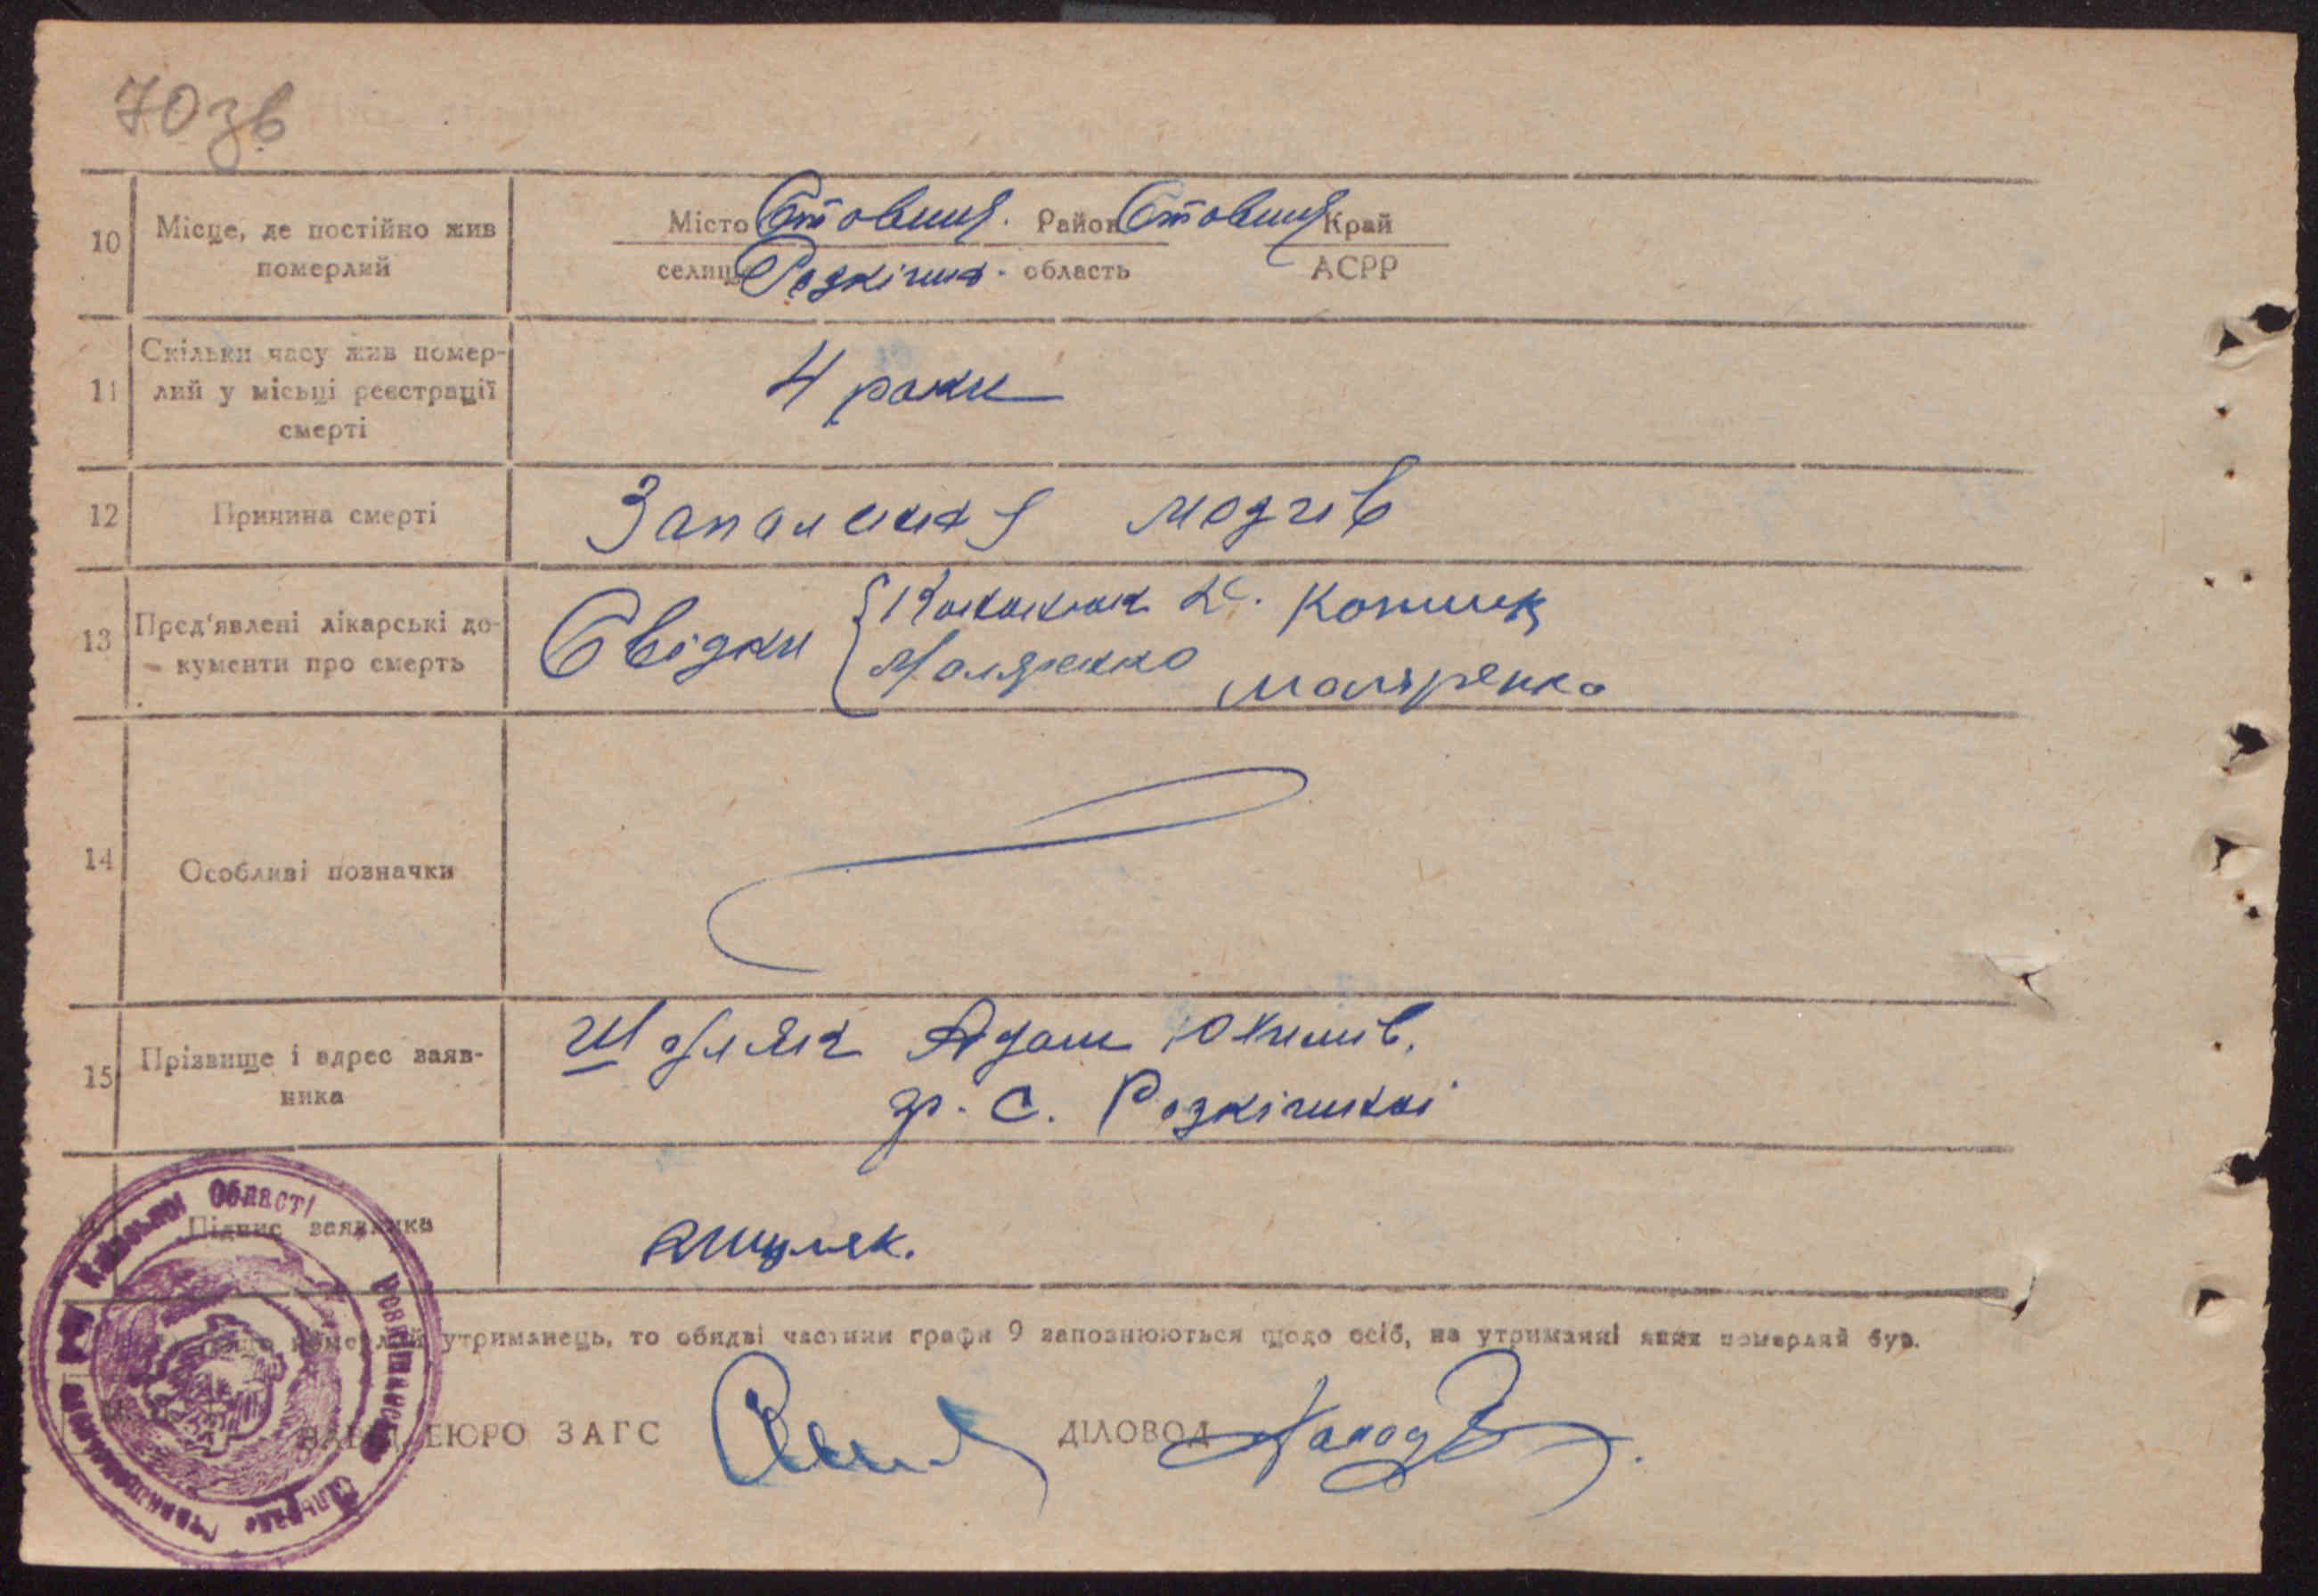 70 зв
10 Місце, де постійно жив померлий
Місто Ставищ. Район Ставищ Край
селище Розкішна. область АСРР
11 Скільки часу жив помер-
лий у місьці реєстрації
смерті
4 роки
12 Причина смерті
Запалення мозгів
13 Пред'явлені лікарські до-
кументи про смерть
Свідки
К. Копищ
Маляренко Маляренко
14 Особливі позначки
15 Прізвище і адрес заяв-
ника
Шуляк Адам Юхимів.
гр. с. Розкішної
Підпис заявника
АШуляк.
Київської Області
Розкішнянська Сільрада
померлий утриманець, то обидві частини графи 9 заповнюються щодо осіб, на утриманні яких померлий був.
БЮРО ЗАГС ДІЛОВОД